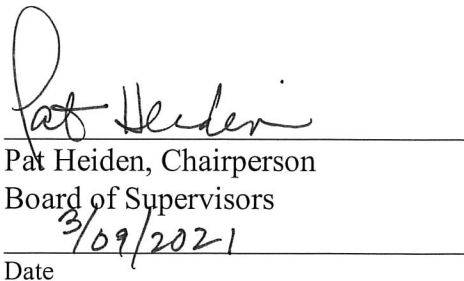 Pat Heiden
Pat Heiden, Chairperson
Board of Supervisors
3/09/2021
Date